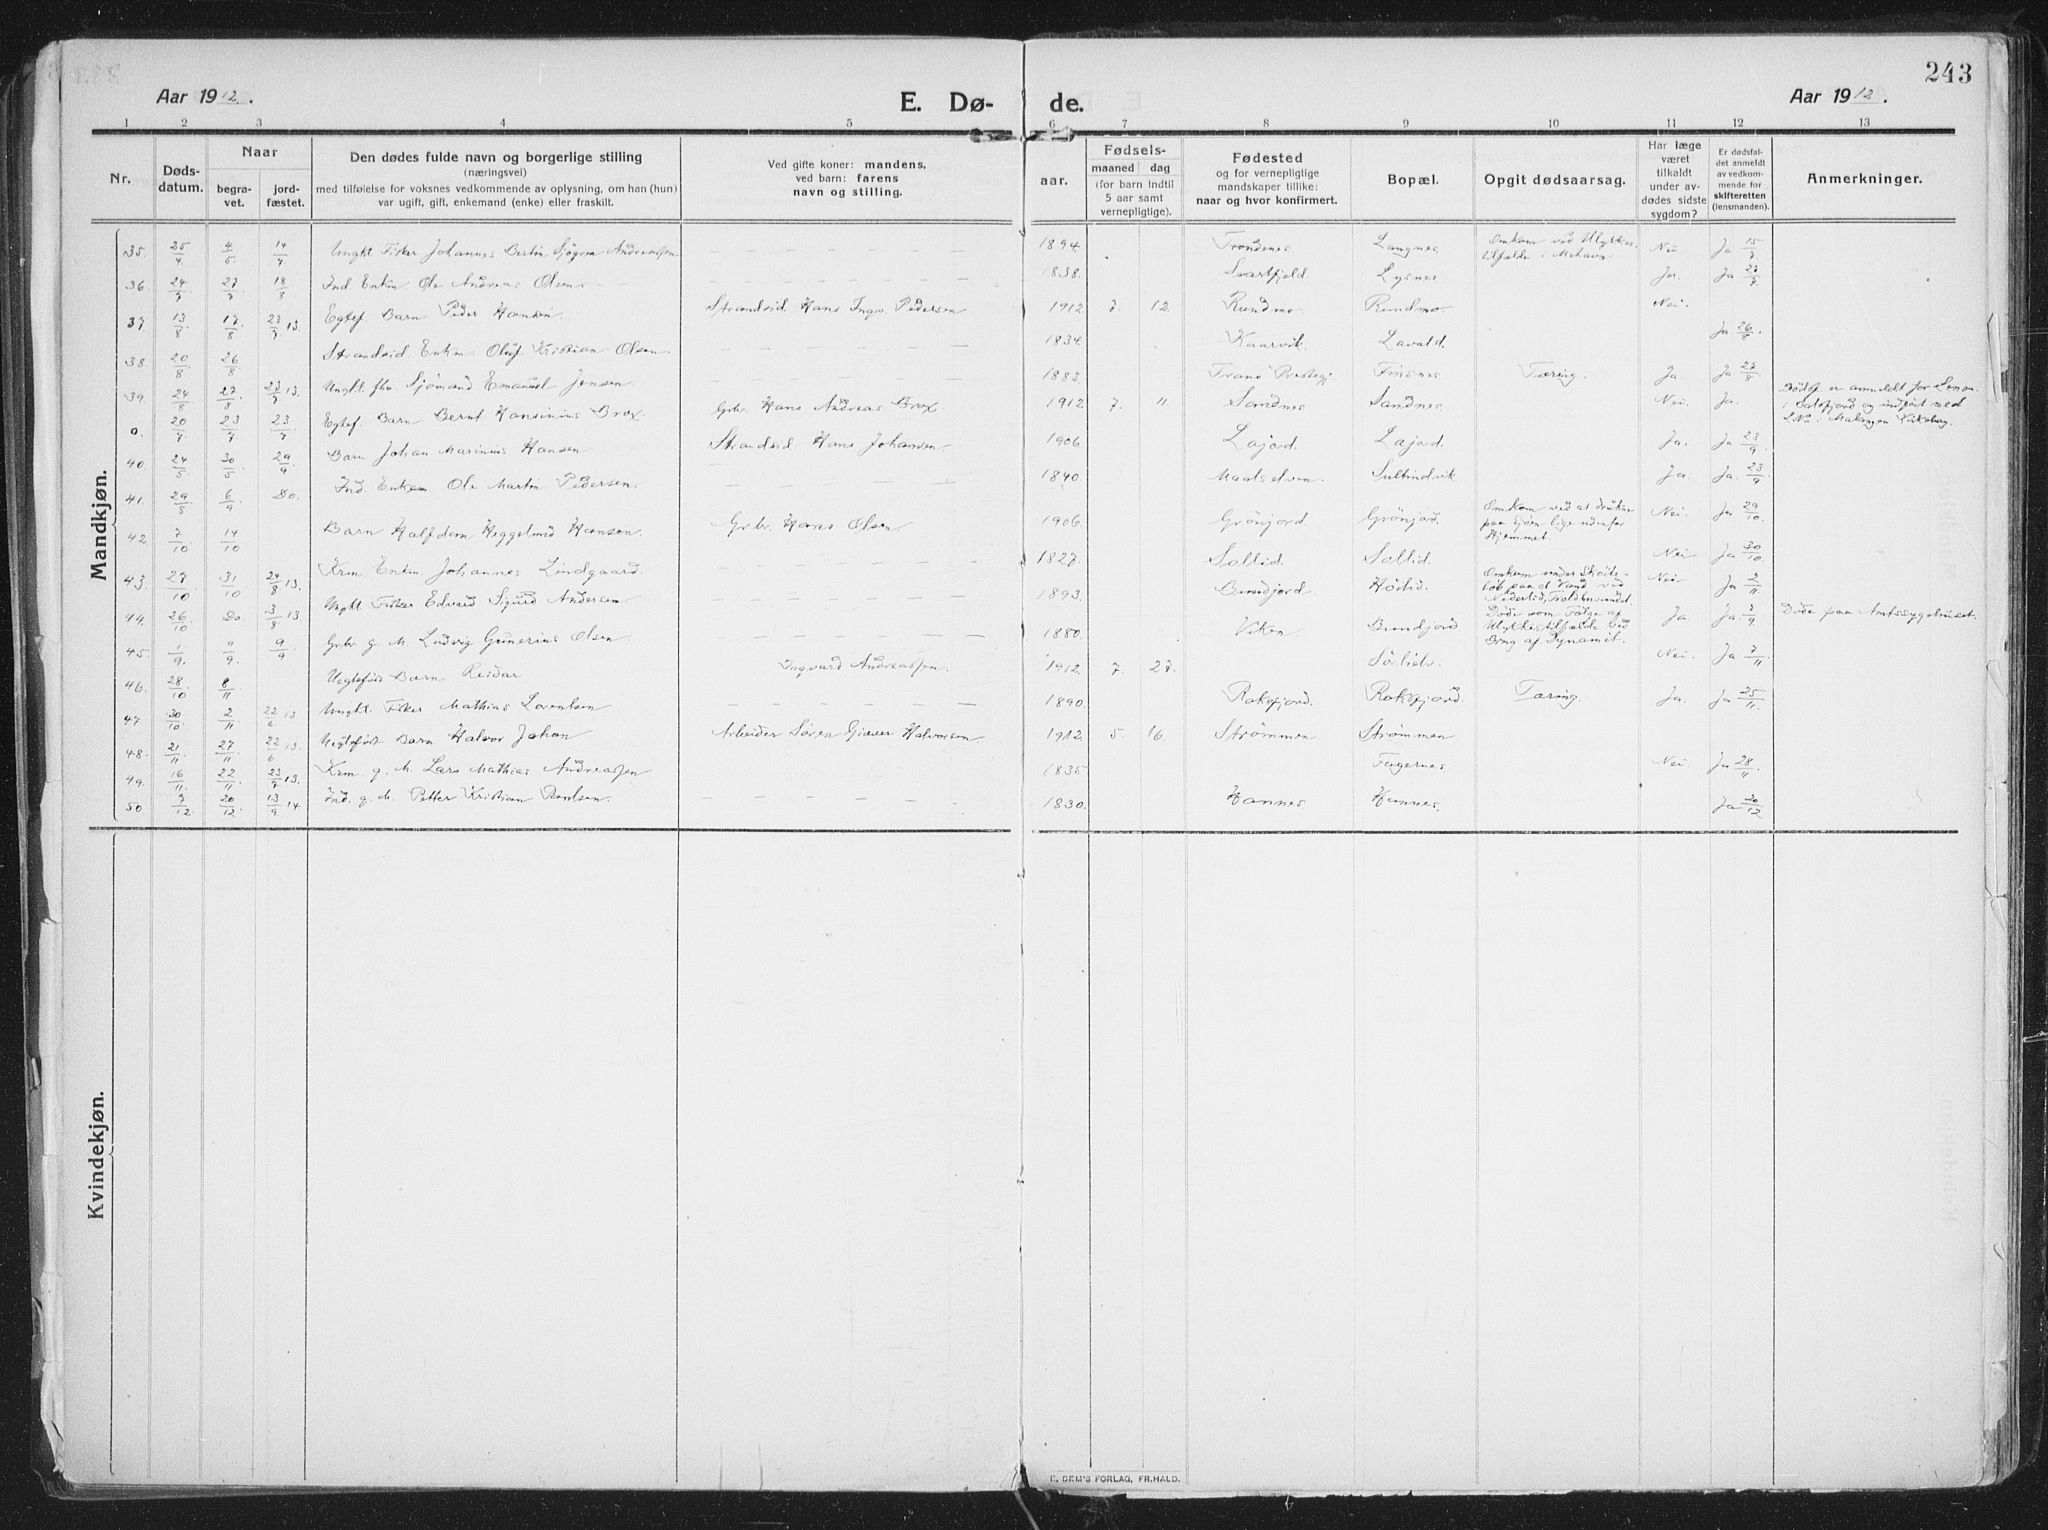 243
Aar 1912.
E. Dø-
de.
Aar 1912.
1 2 3 4 5 6 7 8 9 10 11 12 13
Nr.
Døds-
datum.
Naar
begra-
vet.
jord-
fæstet.
Den dødes fulde navn og borgerlige stilling
(næringsvei)
med tilføielse for voksnes vedkommende av oplysning, om han (hun)
var ugift, gift, enkemand (enke) eller fraskilt.
Ved gifte koner: mandens,
ved barn: farens
navn og stilling.
Fødsels-
aar.
maaned dag
(for barn indtil
5 aar samt
vernepligtige).
Fødested
og for vernepligtige
mandskaper tillike:
naar og hvor konfirmert.
Bopæl.
Opgit dødsaarsag.
Har læge
været
tilkaldt
under av-
dødes sidste
sygdom?
Er dødsfal-
det anmeldt
av vedkom-
mende for
skifteretten
(lensmanden).
Anmerkninger.
Mandkjøn.
35. 25/4 4/5 14/7 Ungkt Fisker Johannes Bertin Sjøgren Andreassen 1894. Trondenes Langnes Omkom ved Ulykkes-
tilfælde i Mehavn Nei. Ja 15/7
36. 24/7 27/7 18/8 Ind Enkm Ole Andreas Olsen 1838. Svartfjeld Lysnes Ja. Ja 27/7
37. 13/8 17/8 23/7 13. Egtef. Barn Peder Hansen Strandsid. Hans Ingv. Pedersen 1912 7. 12. Rundmo Rundmo Nei.
38. 20/8 26/8 Strandsid. Enkm. Oluf Kristian Olsen. 1834. Kaarvik. Lavold. Ja 26/8
39. 24/8 27/8 23/7 13. Ungkt fhv Sjømand Emanuel Jensen 1882. Tranø Prestegj. Finsnes Tæring. Ja. Ja 27/8
0. 20/7 23/7 23/7 Egtef. Barn Bernt Hansinius Brox. Grbr. Hans Andreas Brox. 1912 7. 11 Sandnes Sandnes. Nei. Ja. Dødsf. er anmeldt for Lensm.
i Balsfjord og indført med
L No i Malangen Kirkebog.
40. 24/5 30/5 29/9 Barn Johan Marinius Hansen Strandsid Hans Johansen 1906 Lajord. Lajord. Ja. Ja 23/9
41. 29/8 6/9 Do. Ind. Enkem. Ole Martin Pedersen. 1840. Maalselven. Sultindvik Ja. Ja. 23/9
42. 7/10 14/10 Barn Halfdan Heggelund Hansen. Grbr. Hans Olsen 1906 Grønjord. Grønjord. Omkom ved at drukne
paa Sjøen lige nenfor
Hjemmet. Nei. Ja 29/10.
43. 27/10 31/10 24/8 13. Krm. Enkm. Johannes Lindgaard. 1827. Sollid. Sollid. Nei Ja 30/10.
44. 26/10 Do. 3/8 13 Ungkt Fisker Edvard Sigurd Andersen 1893. Bundjord. Høilid. Omkom under Skøite-
løb paa et Vand ved
Nederlid, Nei Ja
45. 1/9. 9/9 Grbr g. M. Ludvig Gunerius Olsen 1880. Viken. Bundjord Døde som Følge af
Ulykkestilfælde ved
Brug af Dynamit. Ja. Ja. Døde paa Amtssygehuset.
46. 28/10 8/11 Uegtefødt Barn Reidar Ingvard Andreassen. 1912. 7. 27. Sørlidv. Nei. Ja 7/11
47. 30/10. 2/11 22/6 13 Ungkt. Fisker Mathias Lorentsen 1890. Roksfjord. Roksfjord. Tæring Ja. Ja 25/11
48. 21/11 27/11 22/6 13. Uegtefødt Barn Halvor Johan Arbeider Søren Giæver Halvorsen. 1912. 5. 16. Strømmen Strømmen
49. 16/11. 22/11 23/7 13. Krm. g. M. Lars Mathias Andreassen 1835 Fagernes. Nei. Ja 28/11
50 7/12. 20/12 13/9 14 Ind. g. M. Petter Kristian Paulsen. 1830. Hannes. Hannes. Ja 30/12
Kvindekjøn.
E. SEM'S FORLAG, FR.HALD.